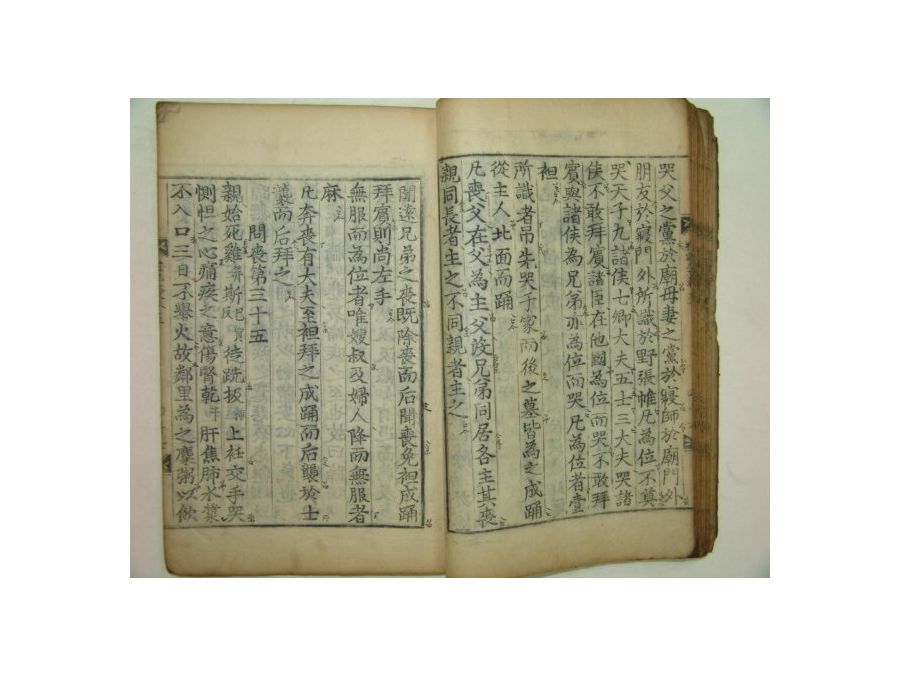 哭父之黨於廟母妻之黨於寢師於廟門外
朋友於寢門外所識於野張帷凡為位不奠
哭天子九諸侯七卿大夫五士三大夫哭諸
侯不敢拜賓諸臣在他國為位而哭不敢拜
賓與諸侯為兄弟亦為位而哭凡為位者壹
袒
所識者吊先哭于家而後之墓皆為之成踊
從主人北面而踊
凡喪父在父為主父沒兄弟同居各主其喪
親同長者主之不同親者主之
聞遠兄弟之喪既除喪而后聞喪免袒成踊
拜賓則尚左手
無服而為位者唯嫂叔及婦人降而無服者
麻
凡奔喪有大夫至袒拜之成踊而后襲於士
襲而后拜之
問喪第三十五
親始死雞斯徒跣扱上衽交手哭
惻怛之心痛疾之意傷腎乾肝焦肺水漿
不入口三日不舉火故鄰里為之糜粥以飲